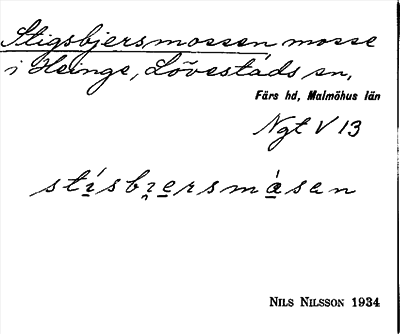 Stigsbjersmossen, mosse
i Heinge, Lövestads sn,
Färs hd, Malmöhus län
Ngt V 13
stísbi̯ersmásen
NILS NILSSON 1934